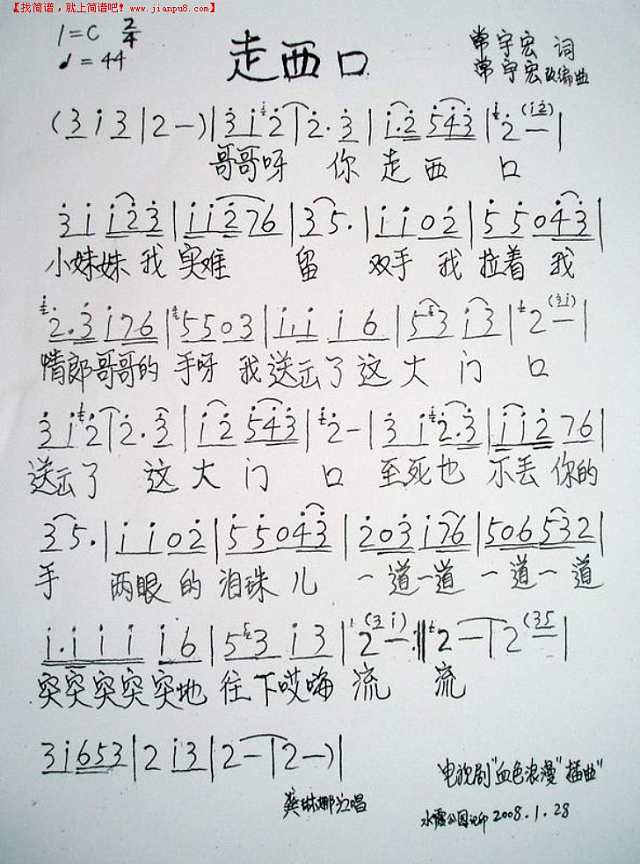 【找简谱，就上简谱吧！www.jianpu8.com】
1=C 2/4
♩=44
走西口
常宇宏 词
常宇宏 改编曲
(3 i 3 | 2 — ) | 3 i 2 | 2. 3 | i. 2 5 4 3 | 2 — (i 2) |
哥哥呀 你 走西 口
3 i i 2 3 | i i 2 7 6 | 3 5. | i i 0 2 | 5 5 0 4 3 |
小妹妹我 实难 留 双手 我 拉着 我
2. 3 i 7 6 | 5 5 0 3 | i. i i 6 | 5 3 i 3 | 2 — (3 i)
情郎哥哥的 手呀 我送云了这大门 口
3 i 2 | 2. 3 | i 2 5 4 3 | 2 - | 3 i 2. 3 | i i 2 7 6 |
送云了 这大门 口 至死也 不丢你的
3 5. | i i 0 2 | 5 5 0 4 3 | 2 0 3 i 7 6 | 5 0 6 5 3 2 |
手 两眼的泪珠儿 一道一道 一道一道
i. i i i i 6 | 5 3 i 3 | 2 — (3 i) :|| 2 — | 2 (3 5 |
突突突突突地 往下哎嗨 流 流
3 i 6 5 3 | 2 i 3 | 2 — | 2 — ) |
电视剧"血色浪漫"插曲"
龚琳娜演唱
2008.1.28